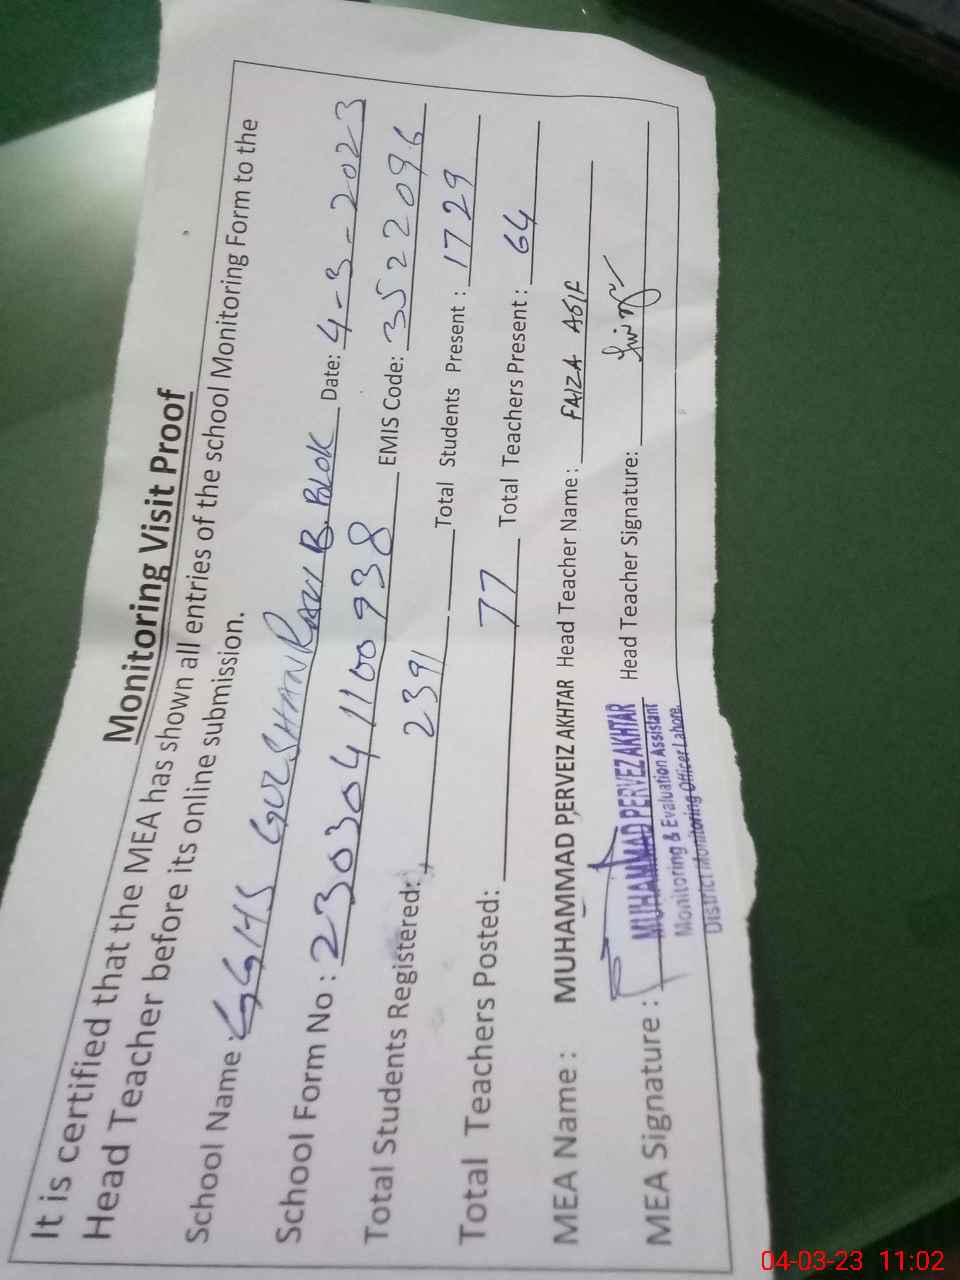 Monitoring Visit Proof
It is certified that the MEA has shown all entries of the school Monitoring Form to the
Head Teacher before its online submission.
School Name: GGHS GULSHAN RAVI B. BLOK Date: 4-3-2023
School Form No: 2303041100938 EMIS Code: 3522096
Total Students Registered: 2391 Total Students Present: 1729
Total Teachers Posted: 77 Total Teachers Present: 64
MEA Name: MUHAMMAD PERVEIZ AKHTAR Head Teacher Name: FAIZA ASIF
MEA Signature: Head Teacher Signature:
MUHAMMAD PERVEZ AKHTAR
Monitoring & Evaluation Assistant
District Monitoring Officer Lahore.
04-03-23 11:02